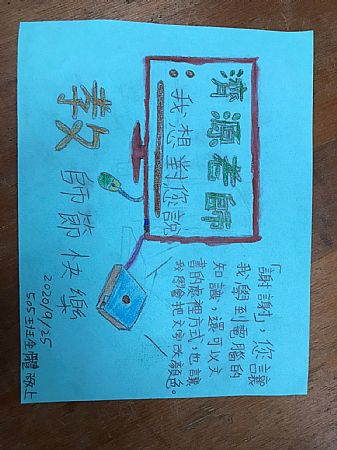 濟源老師
：我想對您說
「謝謝」，您讓
我學到電腦的
知識，還可以文
書的處裡方式，也讓
我學會把文字改顏色。
教師節快樂
2020/9/25
505班全體敬上